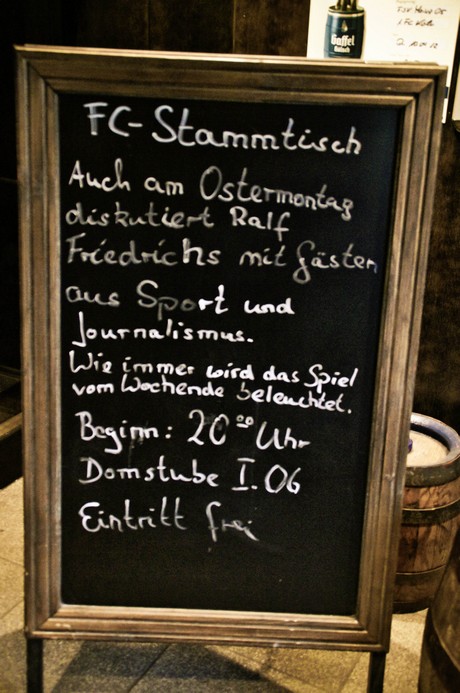 Gaffel
Kölsch
FC-Stammtisch
Auch am Ostermontag
diskutiert Ralf
Friedrichs mit Gästen
aus Sport und
Journalismus.
Wie immer wird das Spiel
vom Wochende beleuchtet.
Beginn: 20⁰⁰ Uhr
Domstube I.06
Eintritt frei